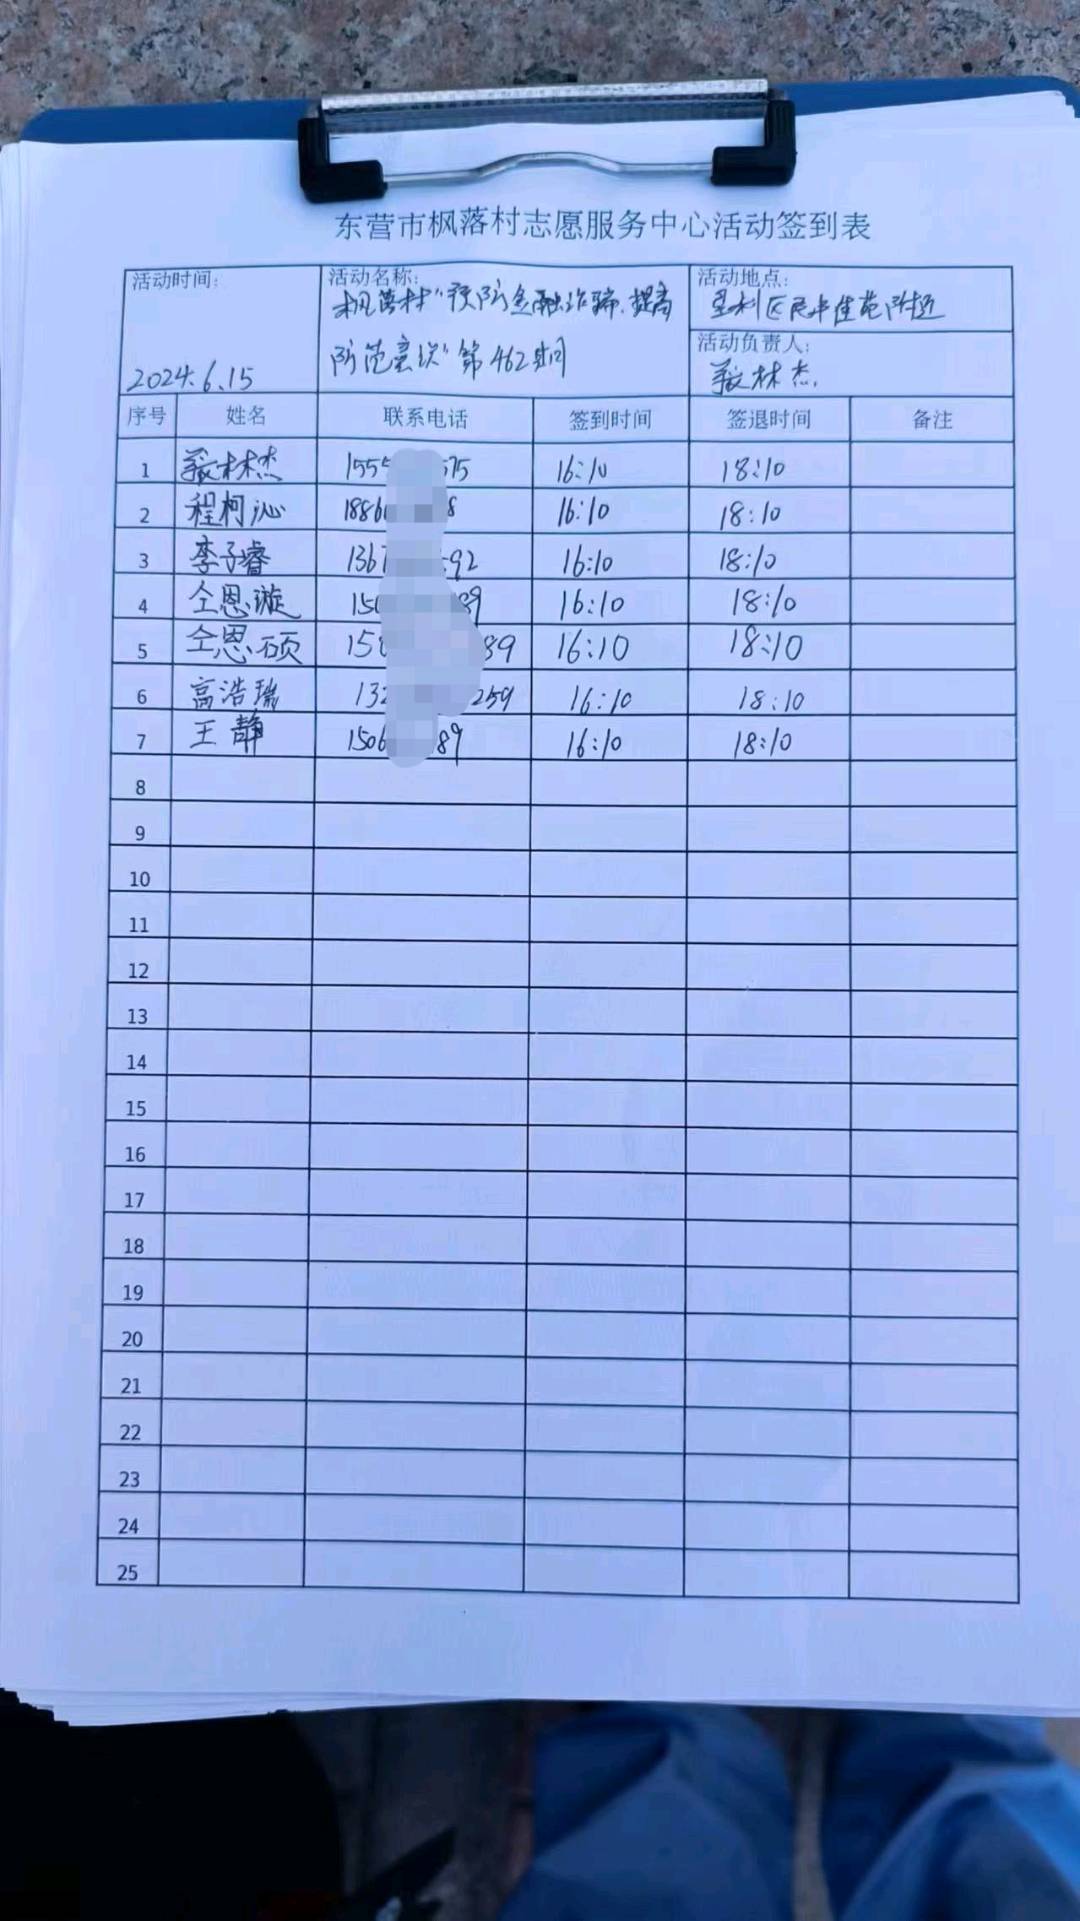 东营市枫落村志愿服务中心活动签到表
活动时间: 活动名称: 活动地点:
枫落村"预防金融诈骗,提高 垦利区民丰佳苑附近
防范意识"第462期 活动负责人:
2024.6.15 林杰
序号 姓名 联系电话 签到时间 签退时间 备注
1 林杰 155 575 16:10 18:10
2 程柯沁 1886 8 16:10 18:10
3 李子睿 136 92 16:10 18:10
4 仝恩漩 150 89 16:10 18:10
5 仝恩硕 150 89 16:10 18:10
6 高浩瑞 132 259 16:10 18:10
7 王静 1506 89 16:10 18:10
8
9
10
11
12
13
14
15
16
17
18
19
20
21
22
23
24
25